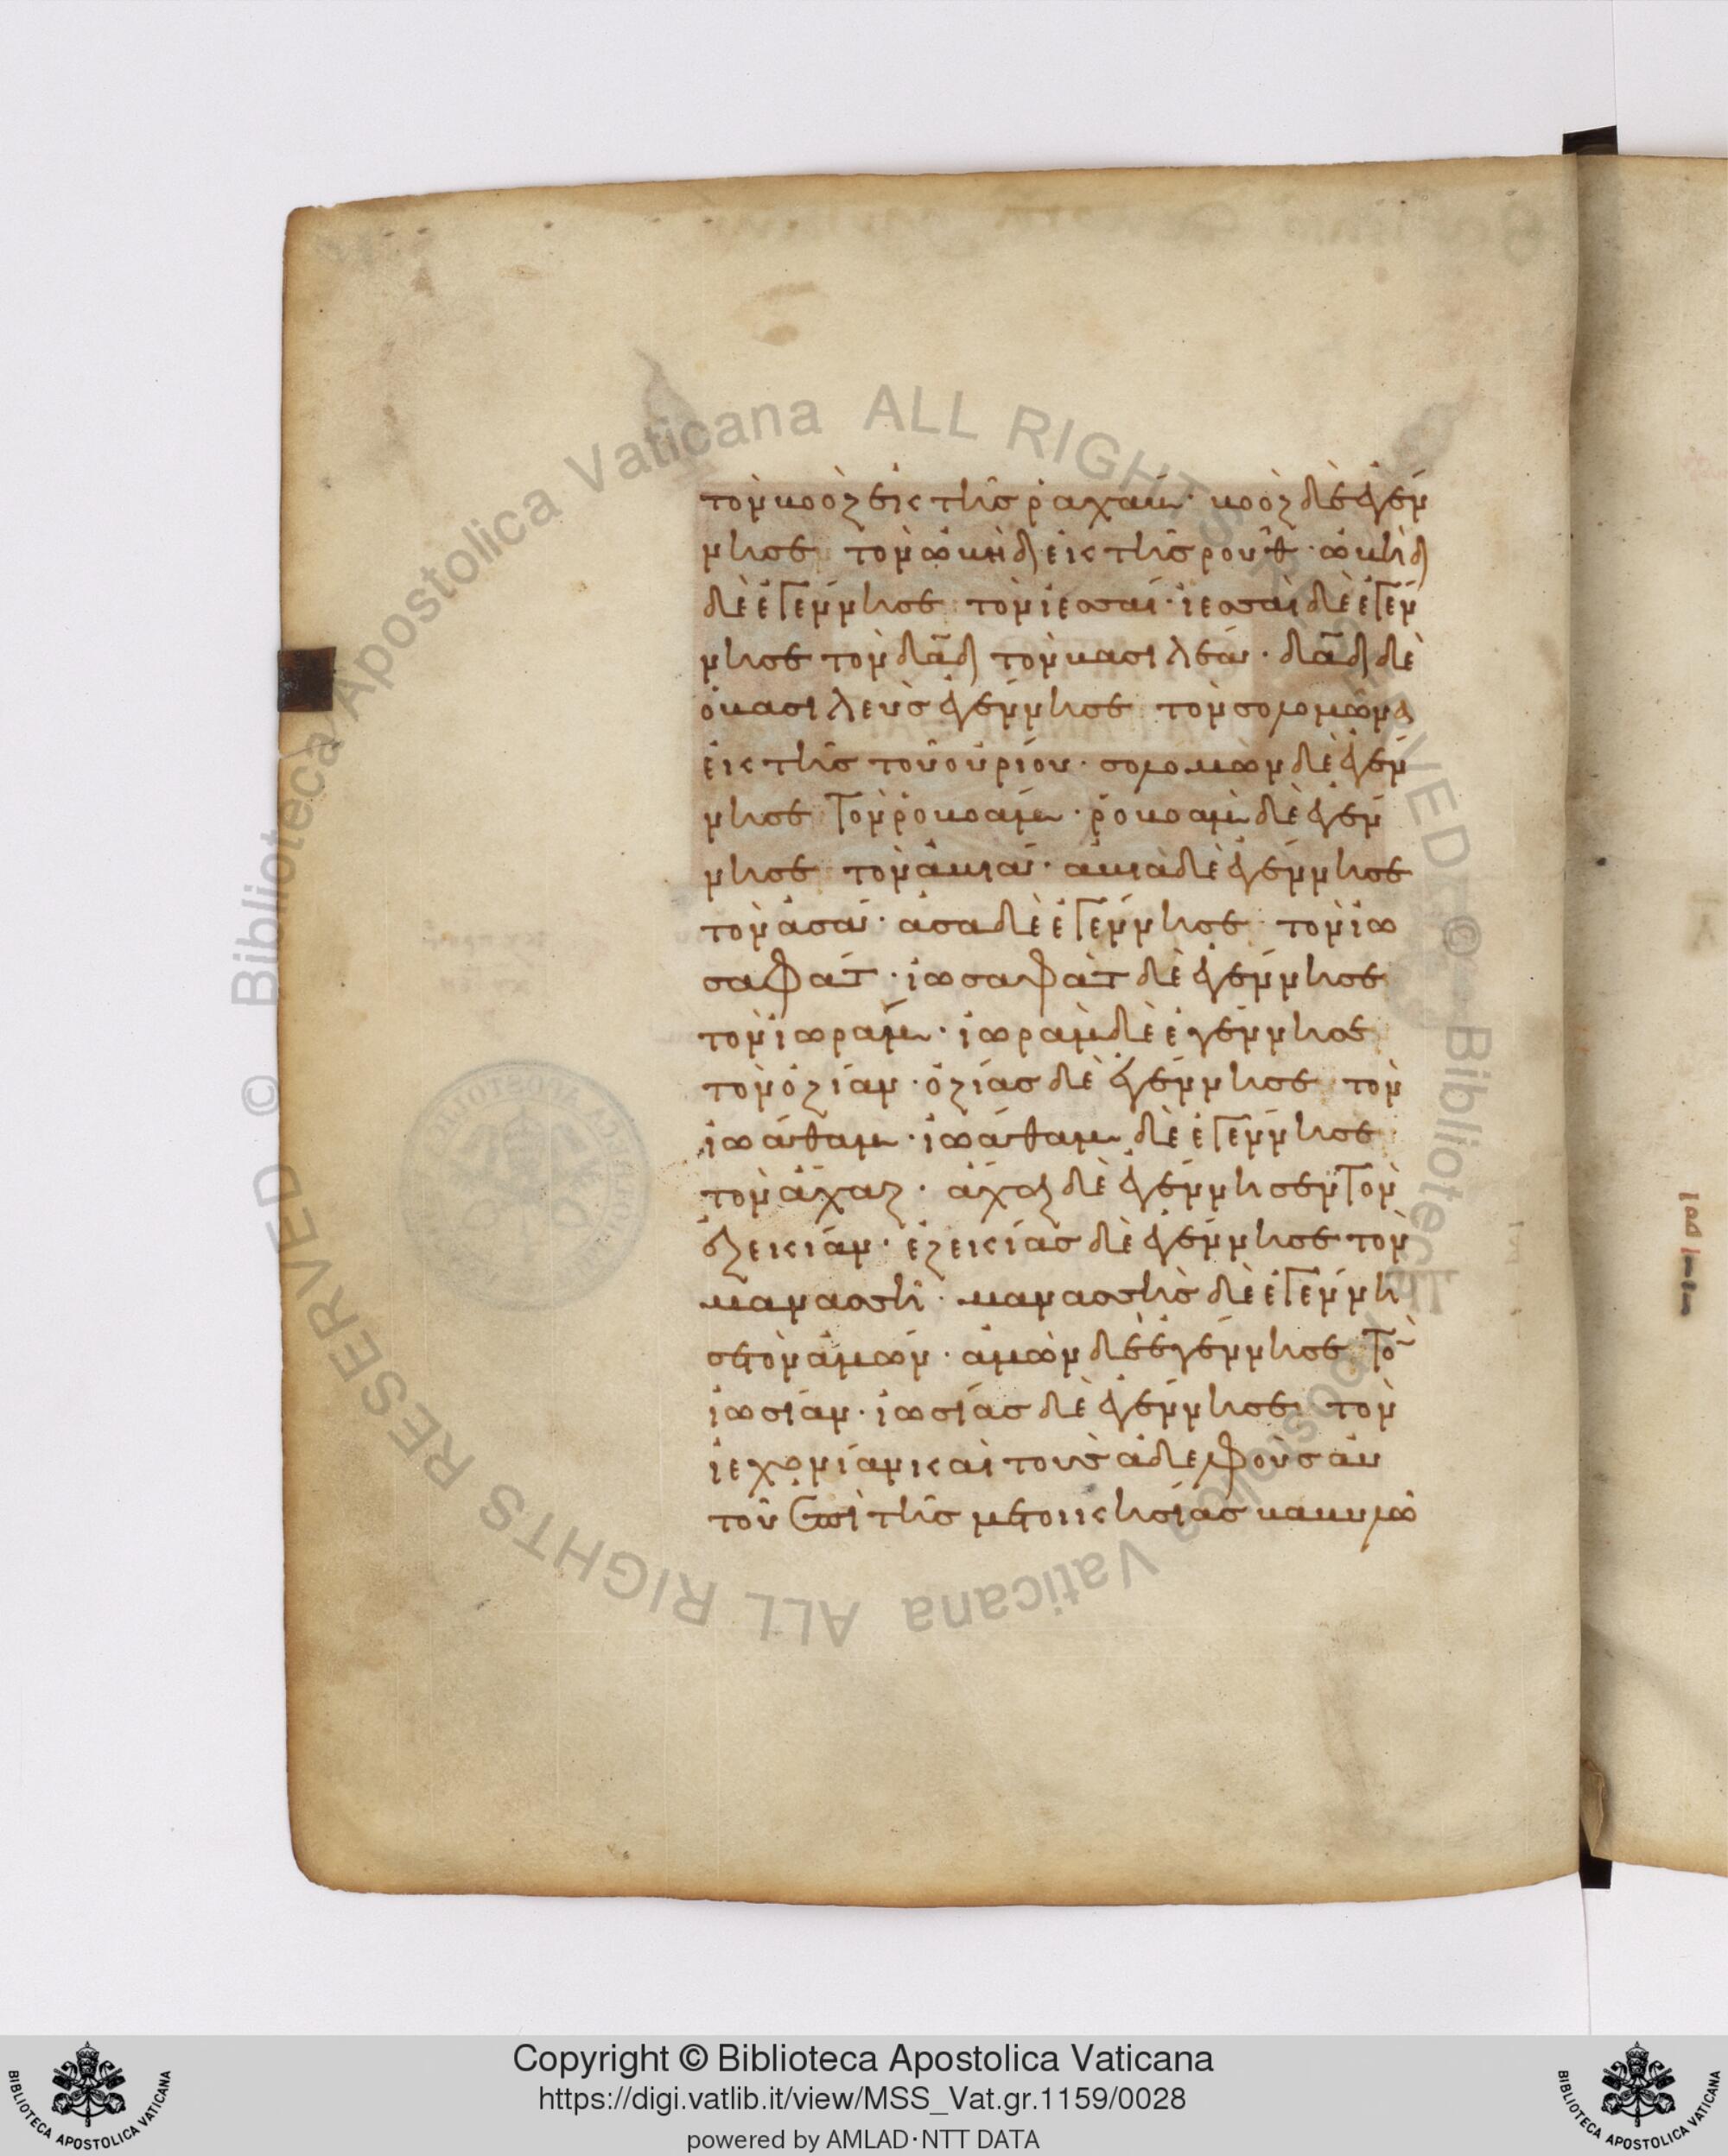 τὸν βοὸζ ἐκ τῆς ῥαχάβ· βοὸζ δὲ ἐγέν
νησε τὸν ὠβὴδ ἐκ τῆς ρούθ· ὠβὴδ
δὲ ἐγέννησε τὸν ἰεσσαί· ἰεσσαὶ δὲ ἐγέν
νησε τὸν δα̅δ τὸν βασιλέα· δα̅δ δὲ
ὁ βασιλεὺς ἐγέννησε τὸν σολομῶνα
ἐκ τῆς τοῦ οὐρίου· σολομὼν δὲ ἐγέν
νησε τὸν ῥοβοάμ· ῥοβοὰμ δὲ ἐγέν
νησε τὸν ἀβιά· ἀβιὰ δὲ ἐγέννησε
τὸν ἀσά· ἀσὰ δὲ ἐγέννησε τὸν ἰω
σαφάτ· ἰωσαφὰτ δὲ ἐγέννησε
τὸν ἰωράμ· ἰωρὰμ δὲ ἐγέννησε
τὸν ὀζίαν· ὀζίας δὲ ἐγέννησε τὸν
ἰωάθαμ· ἰωάθαμ δὲ ἐγέννησε
τὸν ἄχαζ· ἄχαζ δὲ ἐγέννησεν τὸν
ἐζεκίαν· ἐζεκίας δὲ ἐγέννησε τὸν
μανασσῆ· μανασσῆς δὲ ἐγέννη
σε τὸν ἀμών· ἀμὼν δὲ ἐγέννησε το̅
ἰωσίαν· ἰωσίας δὲ ἐγέννησε τὸν
ἰεχονίαν καὶ τοὺς ἀδελφοὺς αὐ
τοῦ ἐπὶ τῆς μετοικησίας βαβυλῶ
© Biblioteca Apostolica Vaticana ALL RIGHTS RESERVED © Biblioteca Apostolica Vaticana ALL RIGHTS RESERVED
Copyright © Biblioteca Apostolica Vaticana
https://digi.vatlib.it/view/MSS_Vat.gr.1159/0028
powered by AMLAD·NTT DATA
BIBLIOTECA APOSTOLICA VATICANA
BIBLIOTECA APOSTOLICA VATICANA